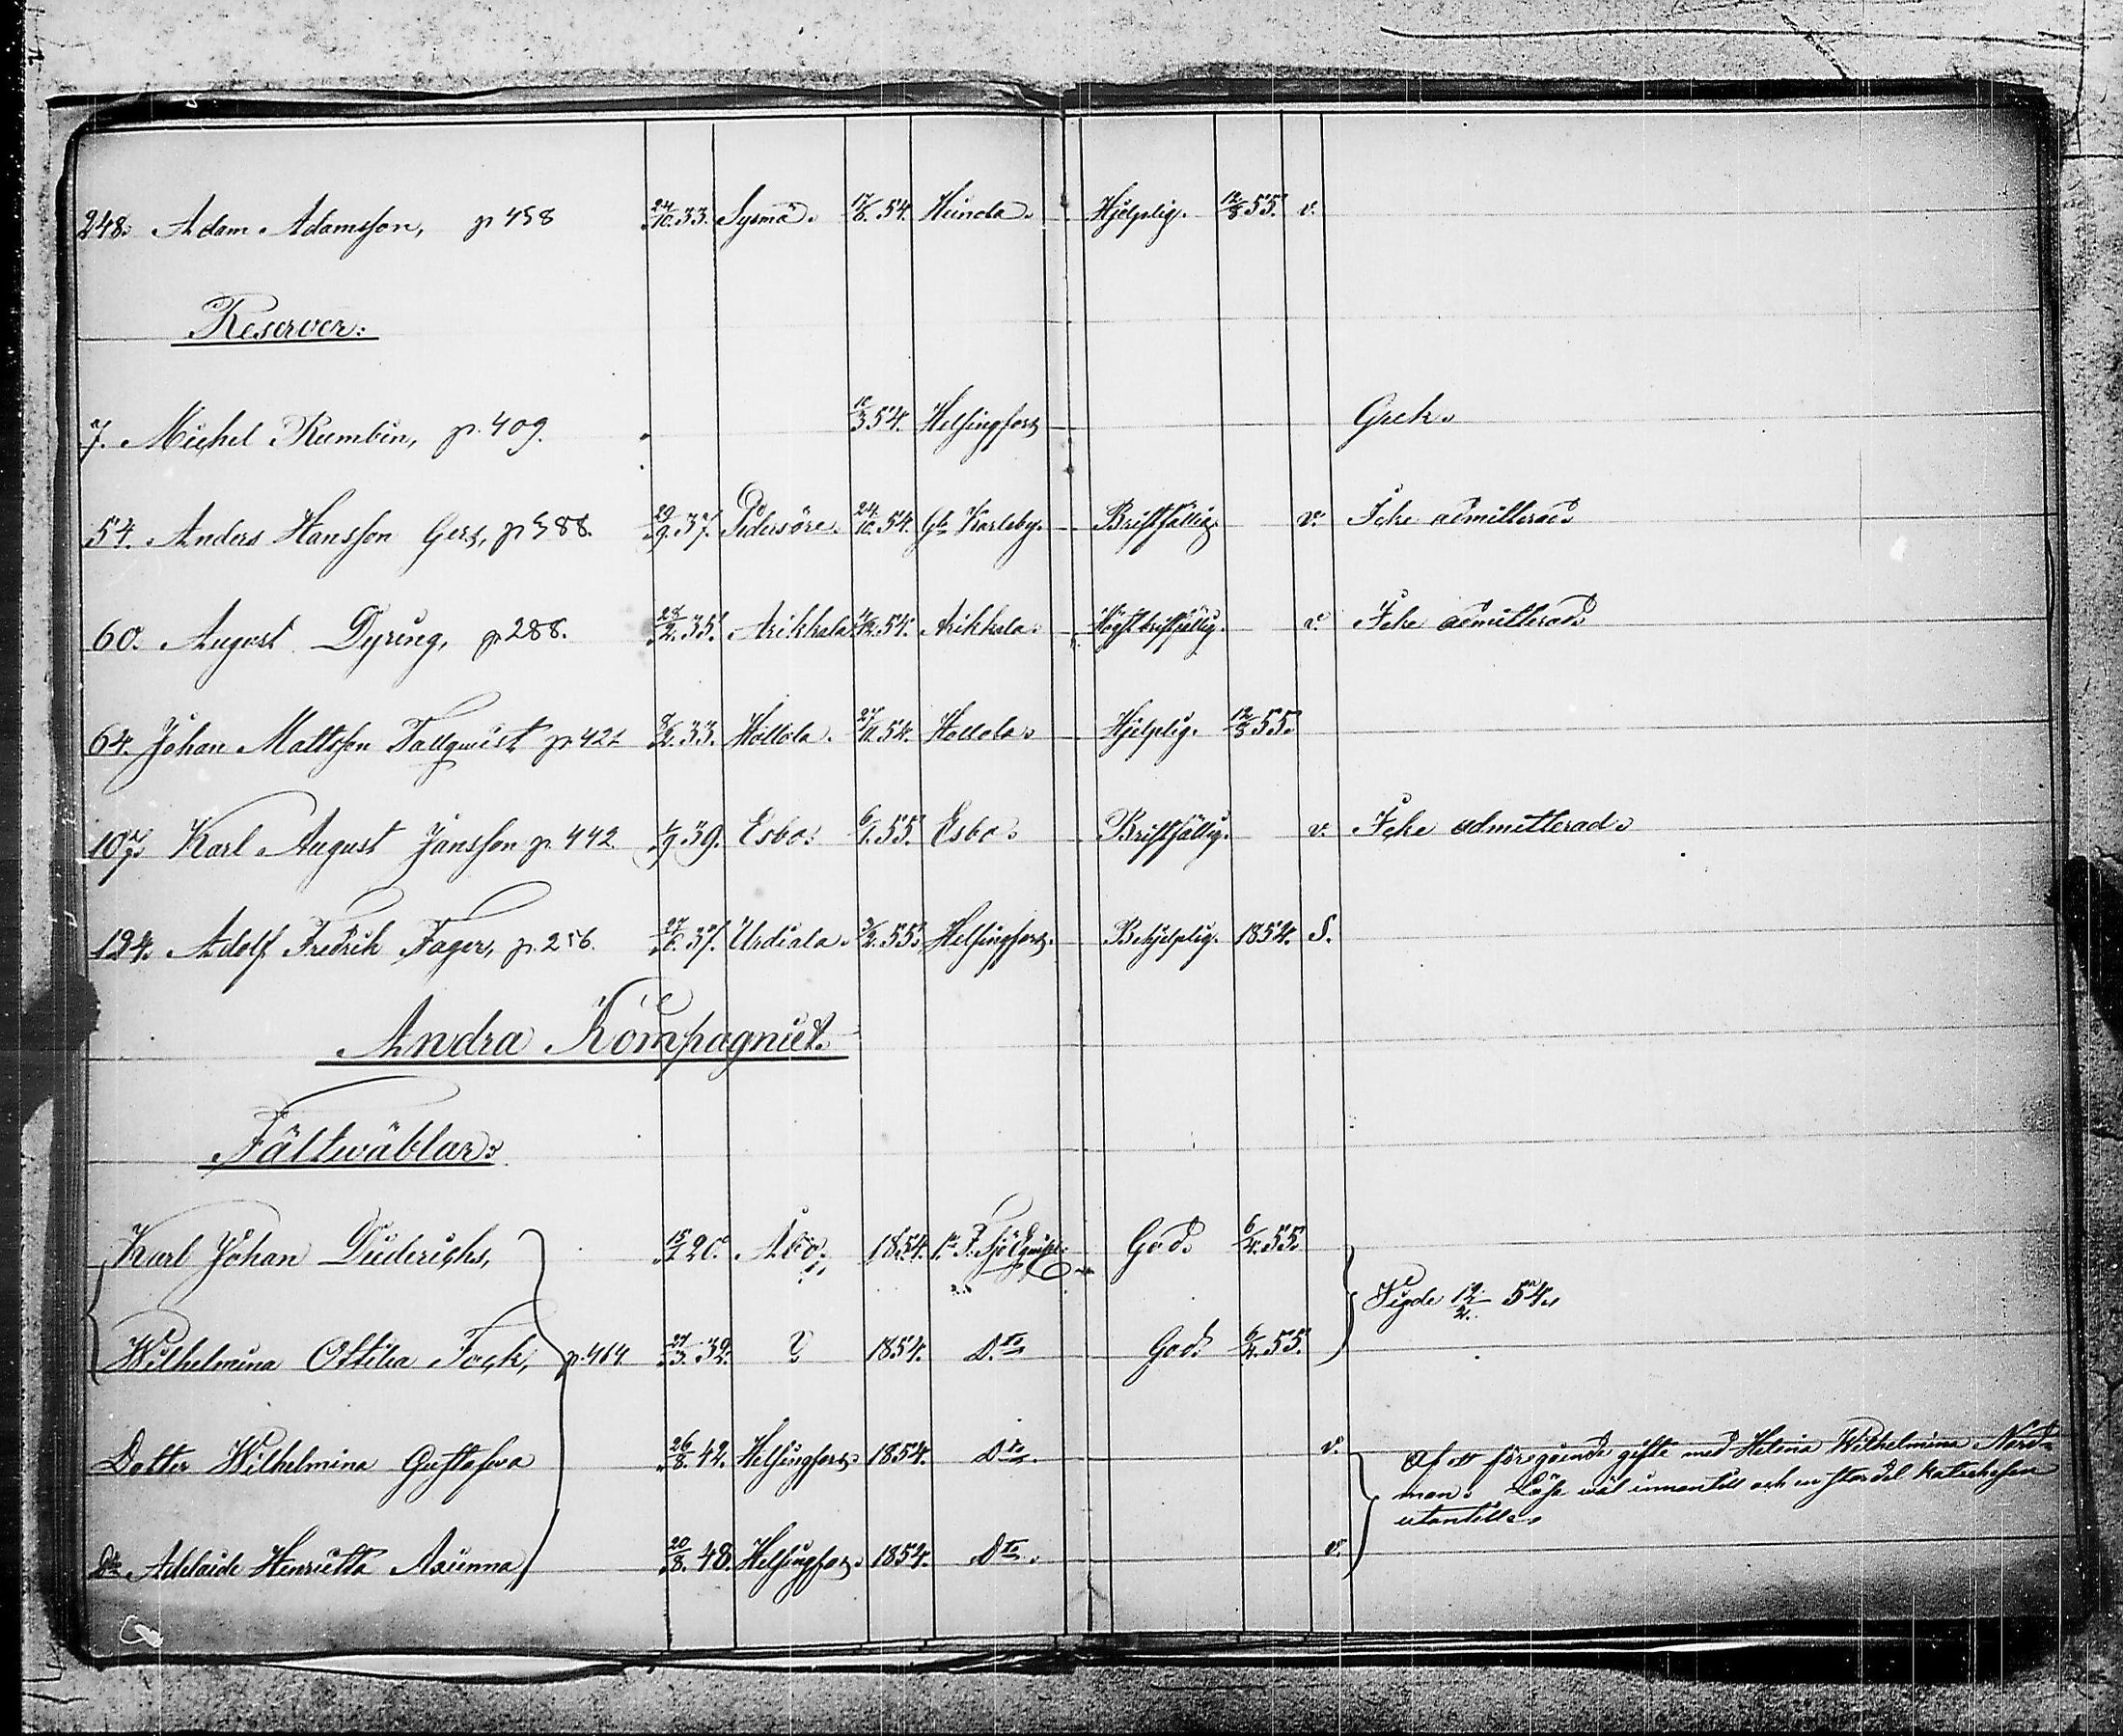 248. Adam Adamsson, p 458 24/10. 33. Sysmä. 17/8. 54. Heinola. Hjelplig. 12/3 55. v.
Reserver:
7. Michel Rumbin, p. 409. 10/3 54. Helsingfors Grek.
54. Anders Hansson Gers, p 388. 29/9. 37. Pedersöre. 24/10. 54. Gl Karleby. Bristfällig. v. Icke admitterad.
60. August Dyring, p 288. 28/2. 35. Asikkala 54. Asikkala. Högst bristfällig. v. Icke admitterad.
64. Johan Mattsson Tallquist p. 421 8/2. 33. Hollola. 27/11. 54. Hollola. Hjelplig. 12/3 55.
107. Karl August Jansson p. 442. 1/9 39. Esbo. 6/1. 55. Esbo. Bristfällig. v. Icke admitterad.
194. Adolf Fredrik Fager, p. 256. 27/6. 37. Urdiala. 3/2. 55. Helsingfors. Behjelplig. 1854. S.
Andra Kompagniet.
Fältwäblar.
Karl Johan Diederichs, 15/1 20. Åbo. 1854. 1a F. Sjö Equipe. God. 6/4. 55.
Vigde 12/2. 54.
Wilhelmina Ottilia Fock, p. 464 27/3. 32. ? 1854. Dto God. 6/4. 55.
Dotter Wilhelmina Gustafva 26/8. 42. Helsingfors 1854. Dto. v. Af ett föregående gifte med Helena Wilhelmina Nord-
man. Läsa wäl innantill och en stor del katechesen
utantill.
Dto Adelaide Henrietta 20/8. 48. Helsingfors. 1854. Dto. v.